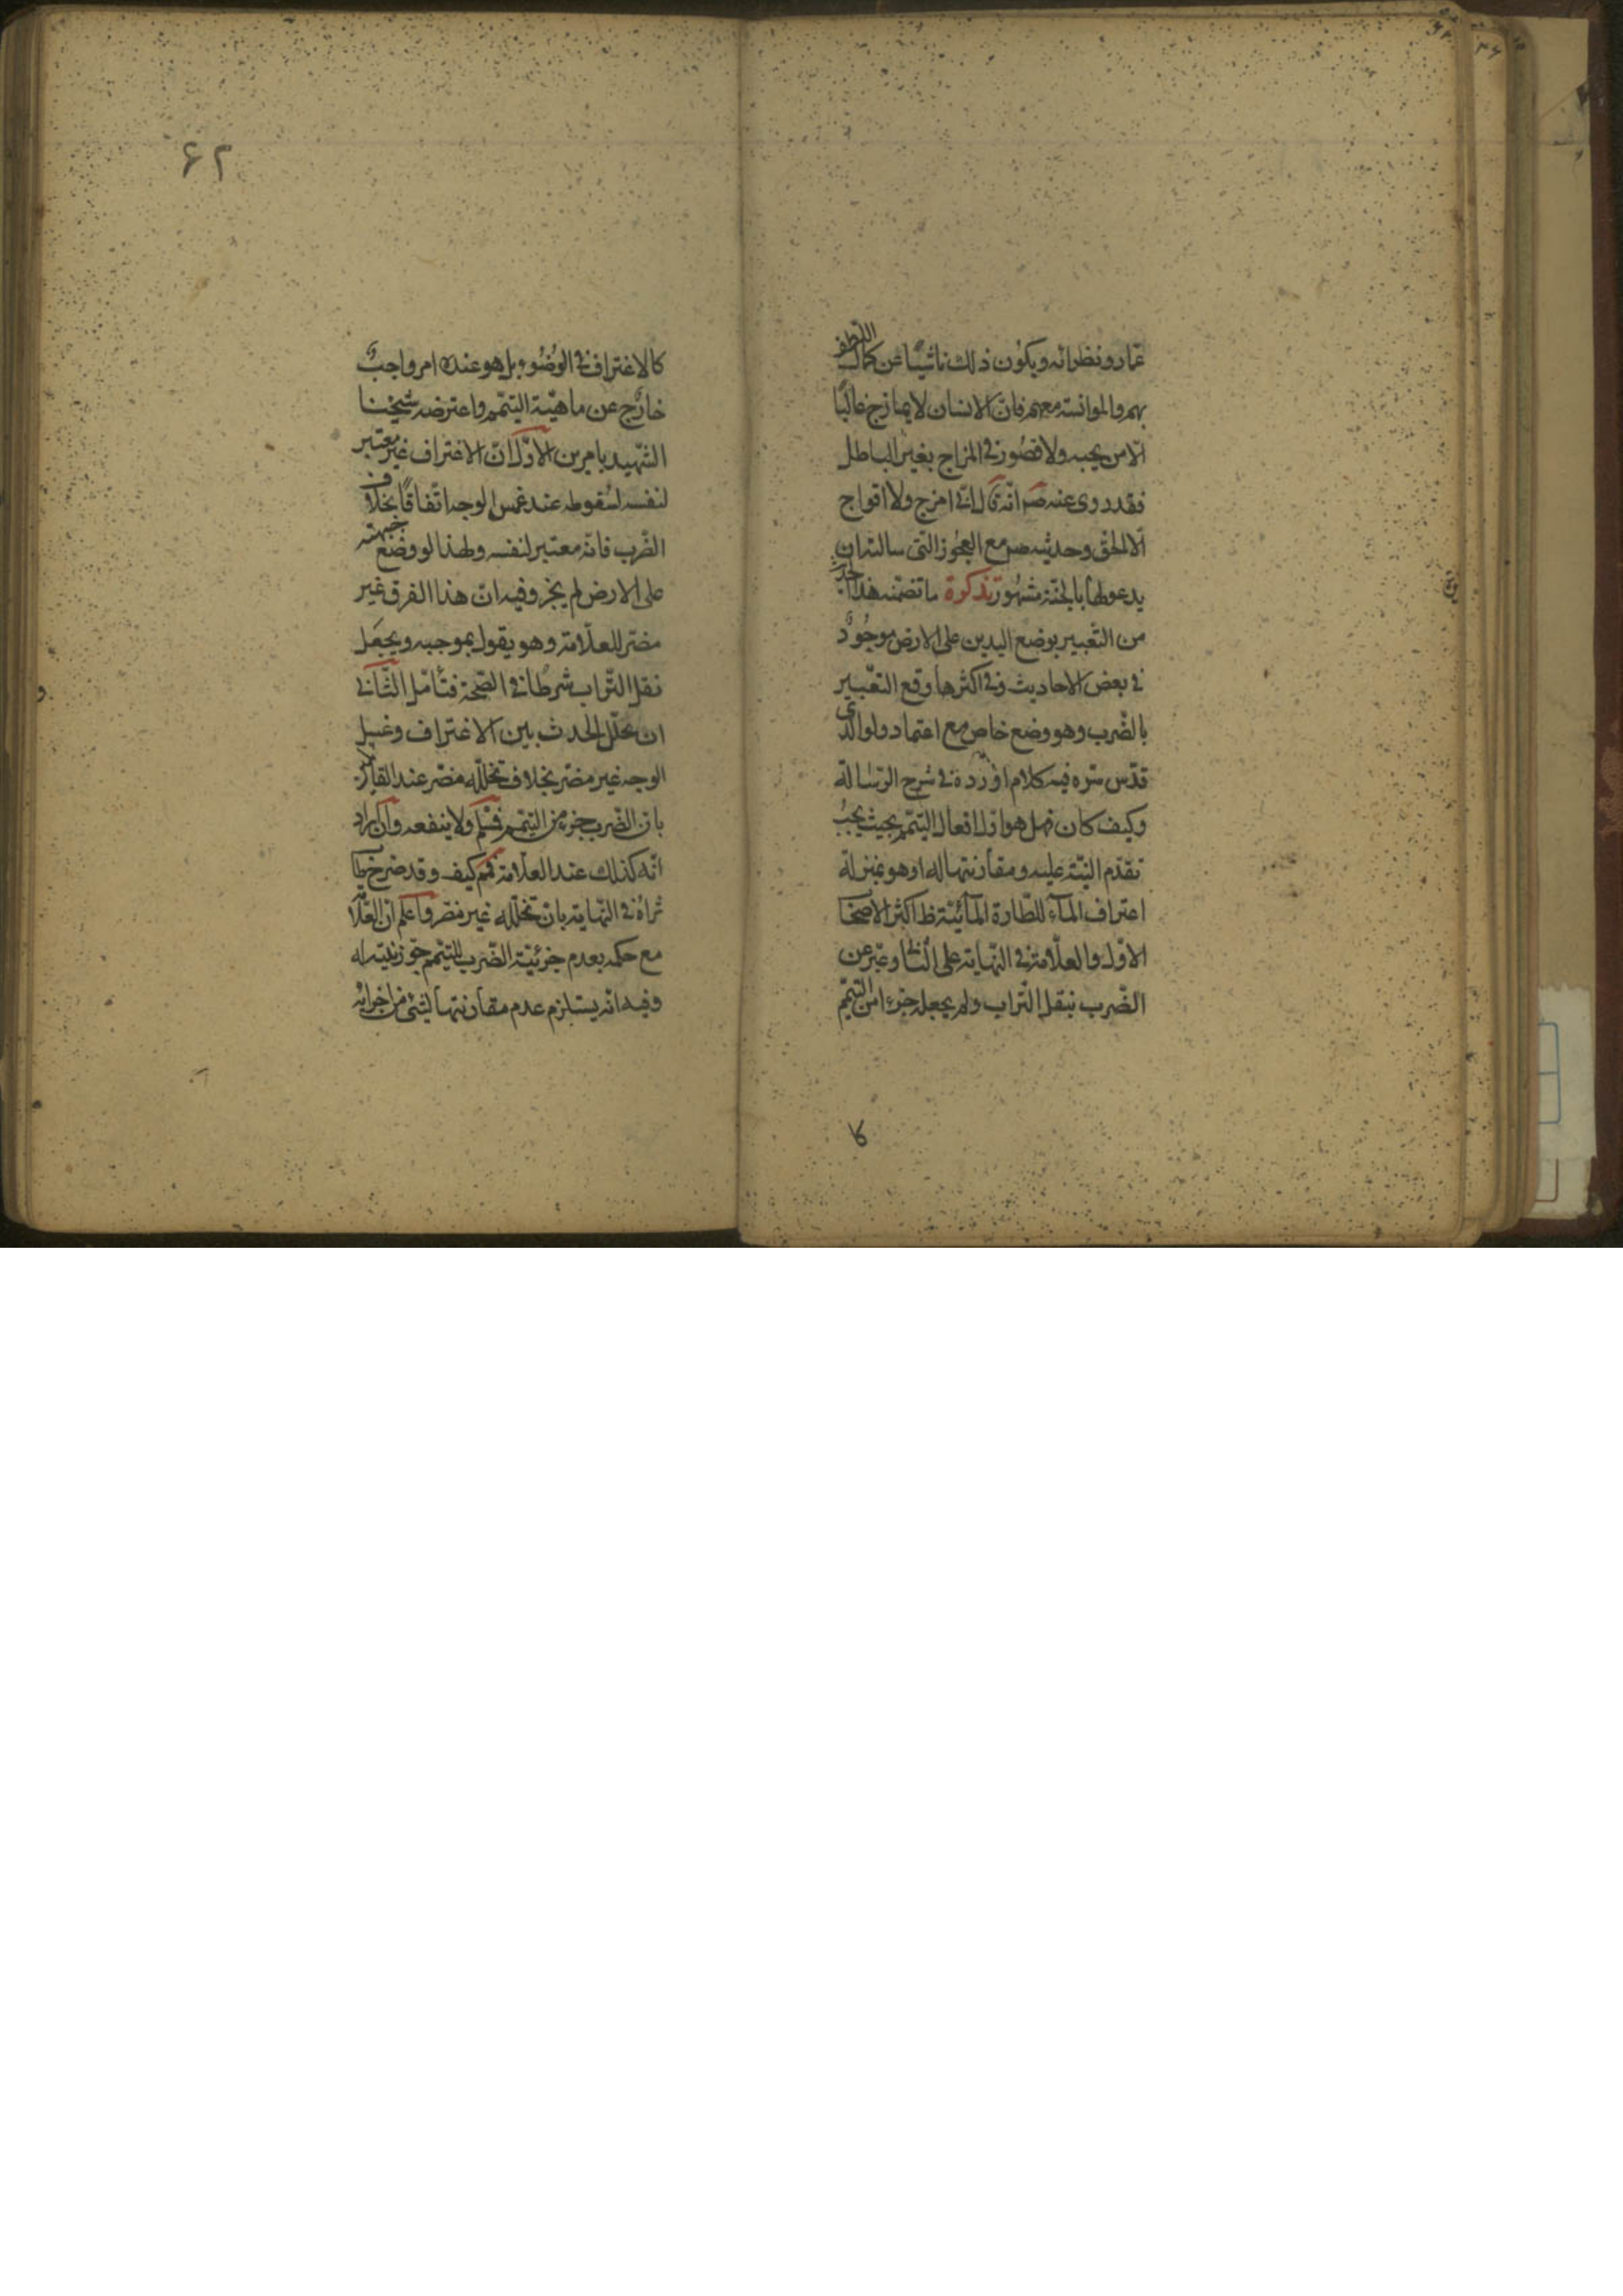 عمار ونظرائه ويكون ذلك ناشيًا عن كمال التلطف
بهم والموانسة معهم فان الانسان لا يمازح غالبًا
الا من يحبه ولا قصور في المزاح بغير الباطل
فقد روى عنه ص انه قال اني امزح ولا اقول
الا الحق وحديثه ص مع العجوز التي سالته ان
يدعو لها بالجنة مشهور تذكرة ما تضمنه هذا الحديث
من التعبير بوضع اليدين على الارض موجود
في بعض الاحاديث وفي اكثرها وقع التعبير
بالضرب وهو وضع خاص مع اعتماد ولوالدي
قدس سره فيه كلام اورده في شرح الرسالة
وكيف كان فهل هو اول افعال التيمم بحيث يجب
تقدم النية عليه ومقارنتها له او هو بمنزلة
اغتراف الماء للطهارة المائية ظ اكثر الاصحاب
الاول والعلامة في النهاية على الثاني وعبر عن
الضرب بنقل التراب ولم يجعله جزءا من التيمم
كا
۶۲
كالاغتراف في الوضوء بل هو عنده امر واجب
خارج عن ماهية التيمم واعترضه شيخنا
الشهيد بامرين الاول ان الاغتراف غير معتبر
لنفسه لسقوطه عند غمس الوجه اتفاقًا بخلاف
الضرب فانه معتبر لنفسه ولهذا لو وضع جبهته
على الارض لم يجز وفيه ان هذا الفرق غير
مضر للعلامة وهو يقول بموجبه ويجعل
نقل التراب شرطًا في الصحة فتأمل الثاني
ان تخلل الحدث بين الاغتراف وغسل
الوجه غير مضر بخلاف تخلله مضر عند القائل
بان الضرب جزء من التيمم فمسلم ولا ينفعه وان اراد
انه كذلك عند العلامة فمم كيف وقد صرح كما
تراه في النهاية بان تخلله غير مضر واعلم ان العلامة
مع حكمه بعدم جزئية الضرب للتيمم جوز نيته له
وفيه انه يستلزم عدم مقارنتها لشئ من اجزائه